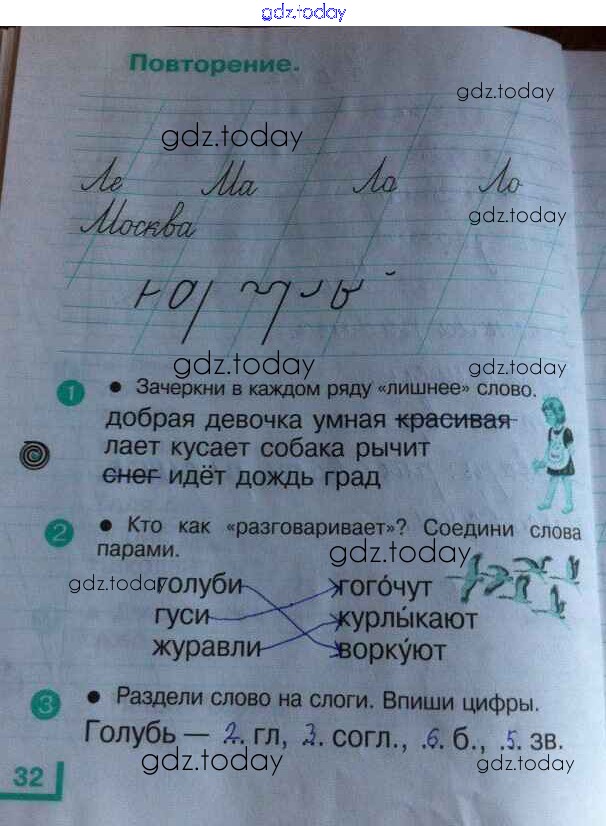 gdz.today
Повторение.
gdz.today
gdz.today
Ле Ма Ла Ло
gdz.today
Москва
gdz.today
gdz.today
1 • Зачеркни в каждом ряду «лишнее» слово.
добрая девочка умная красивая
лает кусает собака рычит
снег идёт дождь град
2 • Кто как «разговаривает»? Соедини слова
парами.
gdz.today
gdz.today
голуби гого́чут
гуси курлы́кают
журавли ворку́ют
3 • Раздели слово на слоги. Впиши цифры.
Голубь — 2. гл, 3. согл., 6. б., 5. зв.
gdz.today
gdz.today
32